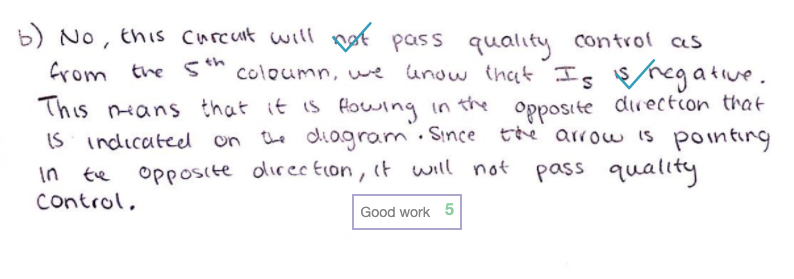 b) No, this curcuit will not pass quality control as
from the 5th coloumn, we know that I5 is negative.
This means that it is flowing in the opposite direction that
is indicated on the diagram. Since the arrow is pointing
in the opposite direction, it will not pass quality
control.
Good work 5